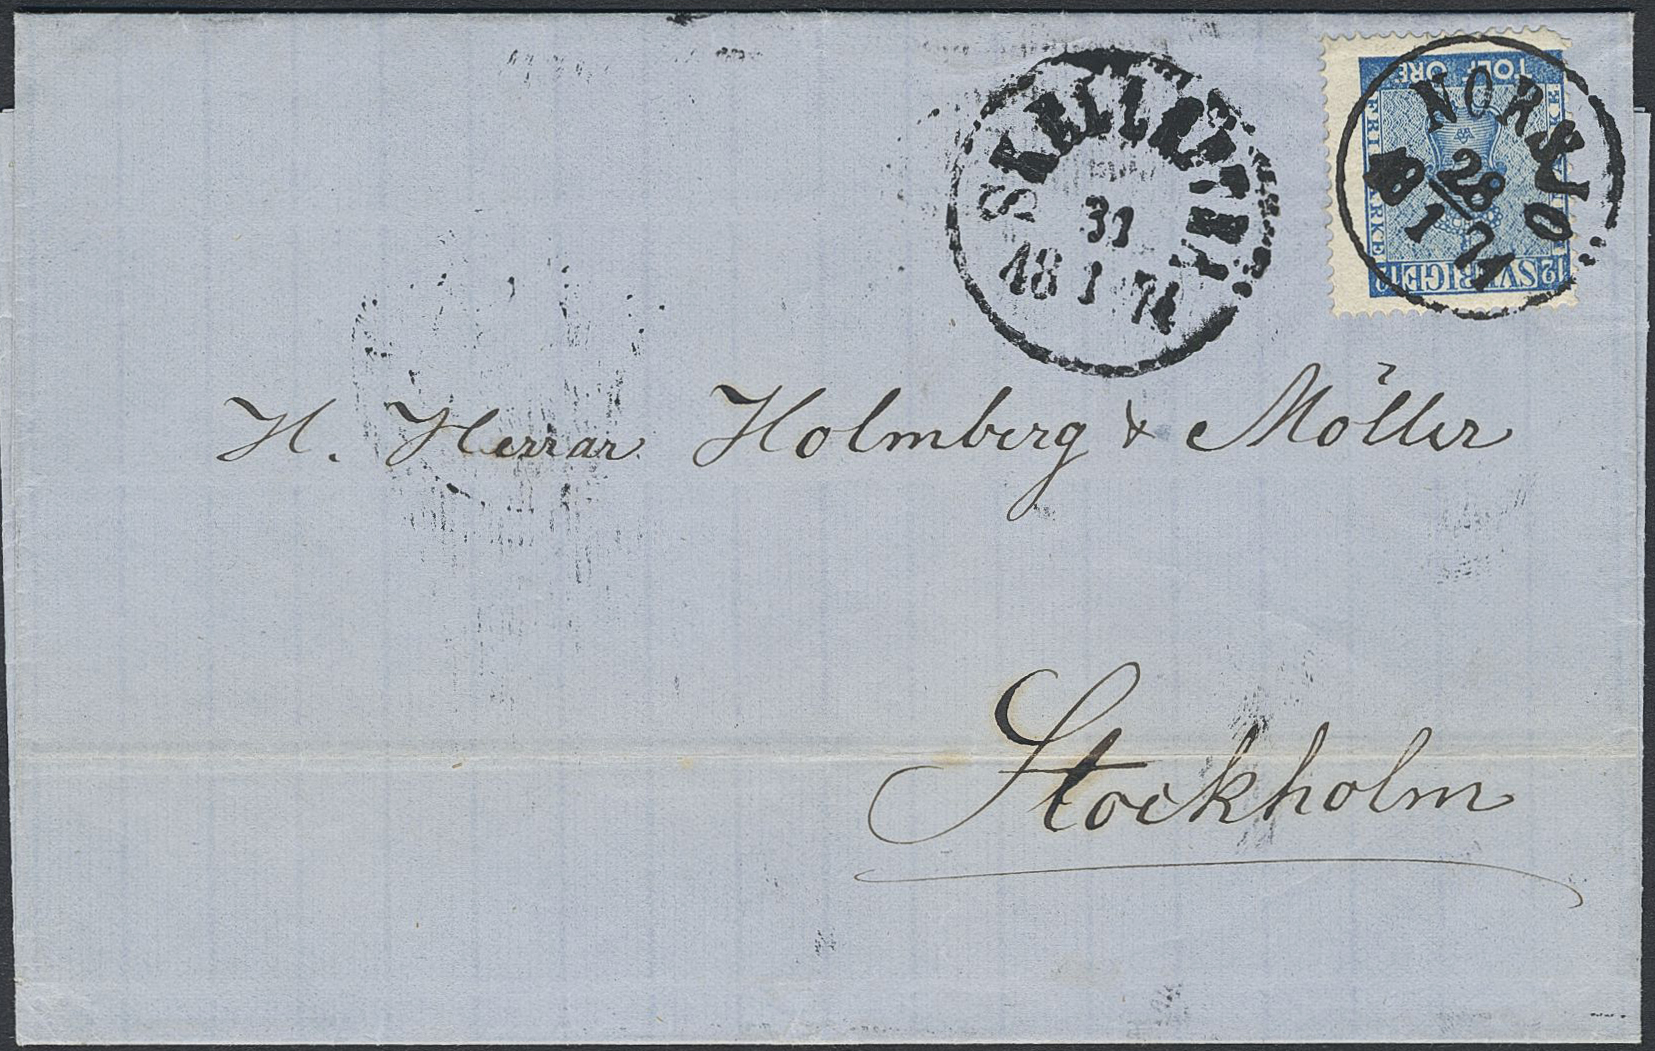 SKELLEFTEÅ
31
18 1 71
NORSJÖ
28
18 1 71
TOLF ÖRE
FRIMARKE
12 SVERIGE 12
H. Herrar Holmberg & Möller
Stockholm